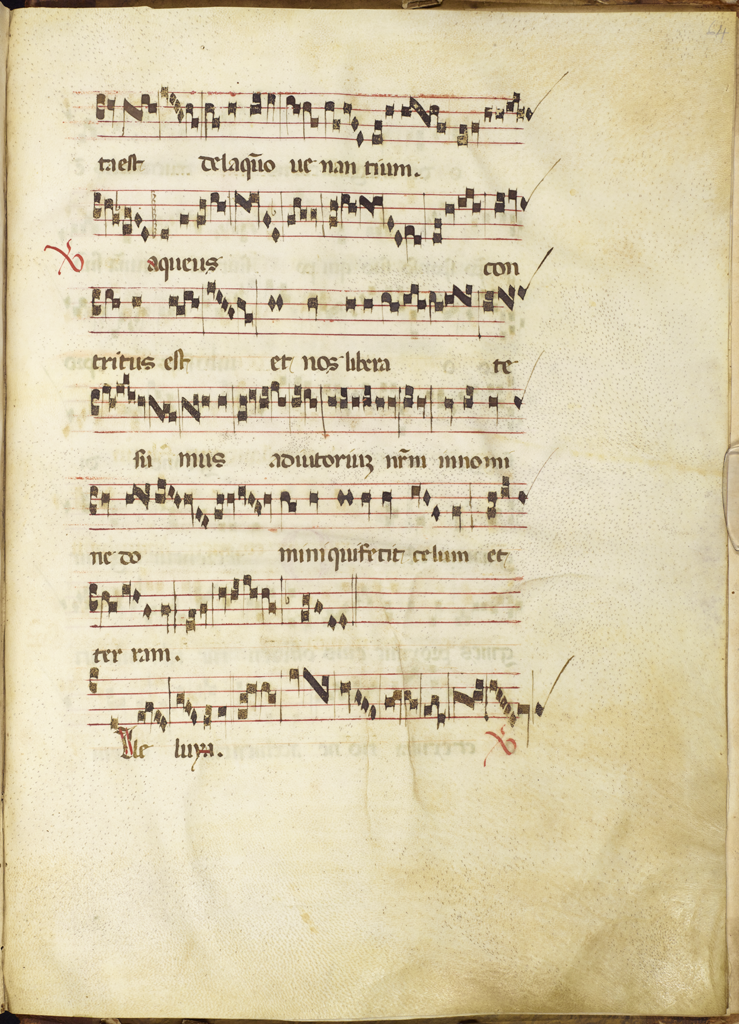 ta est de laq̄o ue nan tium.
℣ aqueus con
tritus est et nos libera te
su mus adiutoriuꝫ nr̄m innomi
ne do mini qui fecit celum et
ter ram.
Alle luya. ℣